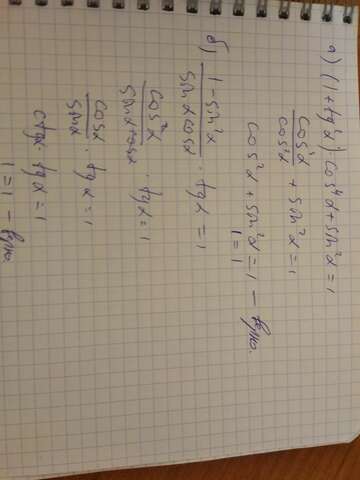 а) (1+tg²α) cos⁴α + sin²α = 1
cos⁴α / cos²α + sin²α = 1
cos²α + sin²α = 1 – верно.
1 = 1
б) 1 - sin²α / sinα cosα · tgα = 1
cos²α / sinα · cosα · tgα = 1
cosα / sinα · tgα = 1
ctgα · tgα = 1
1 = 1 – верно.